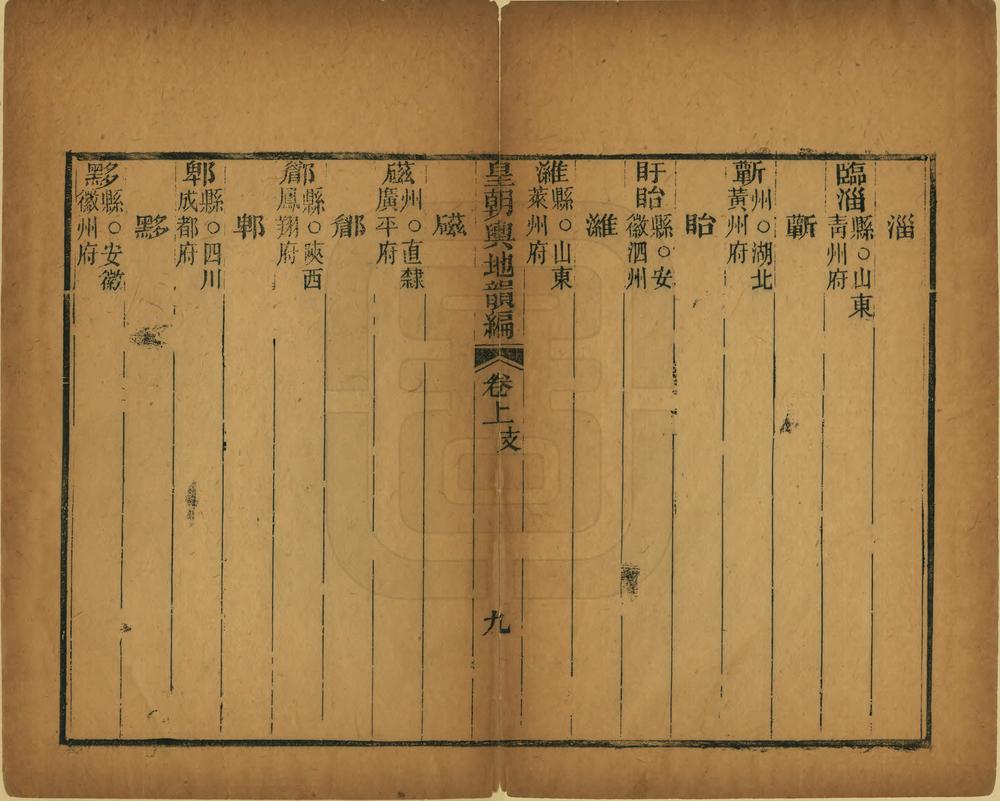 淄
臨淄縣○山東
青州府
蘄
蘄州○湖北
黃州府
眙
盱眙縣○安
徽泗州
濰
濰縣○山東
萊州府
皇朝輿地韻編
卷上
支
九
磁
磁州○直隸
廣平府
郿
郿縣○陝西
鳳翔府
郫
郫縣○四川
成都府
黟
黟縣○安徽
徽州府